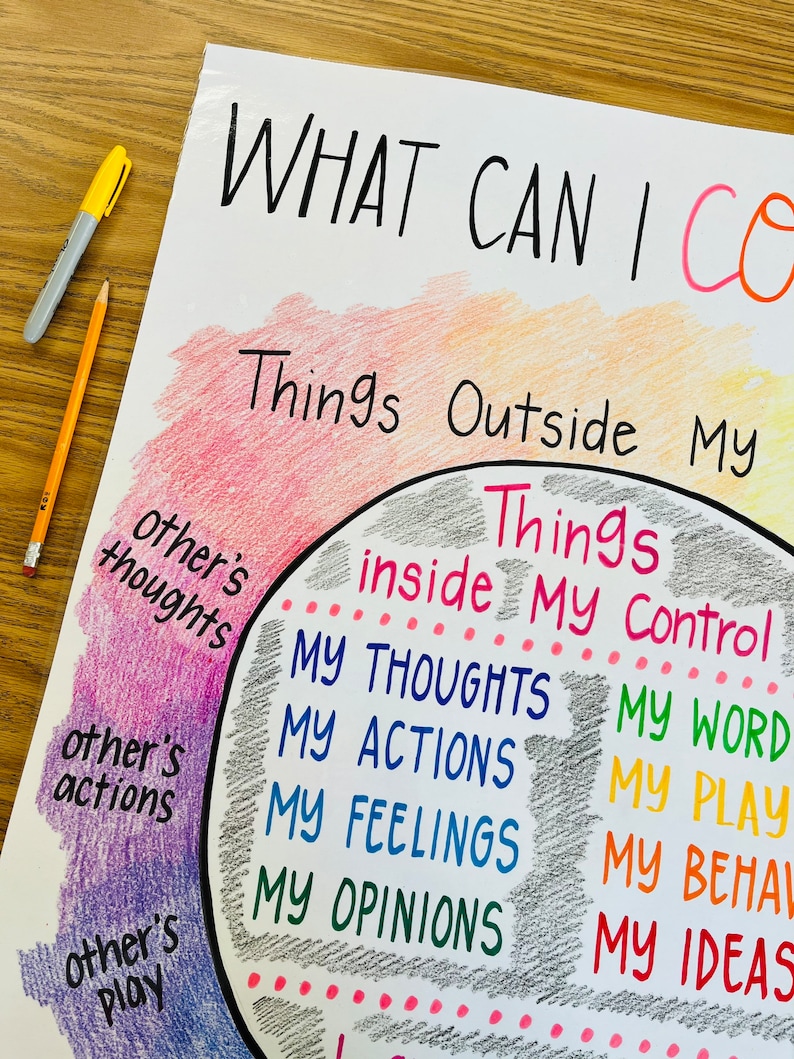 WHAT CAN I CO
Things Outside My
other's
thoughts
other's
actions
other's
play
Things
inside My Control
MY THOUGHTS
MY ACTIONS
MY FEELINGS
MY OPINIONS
MY WORD
MY PLAY
MY BEHAV
MY IDEAS